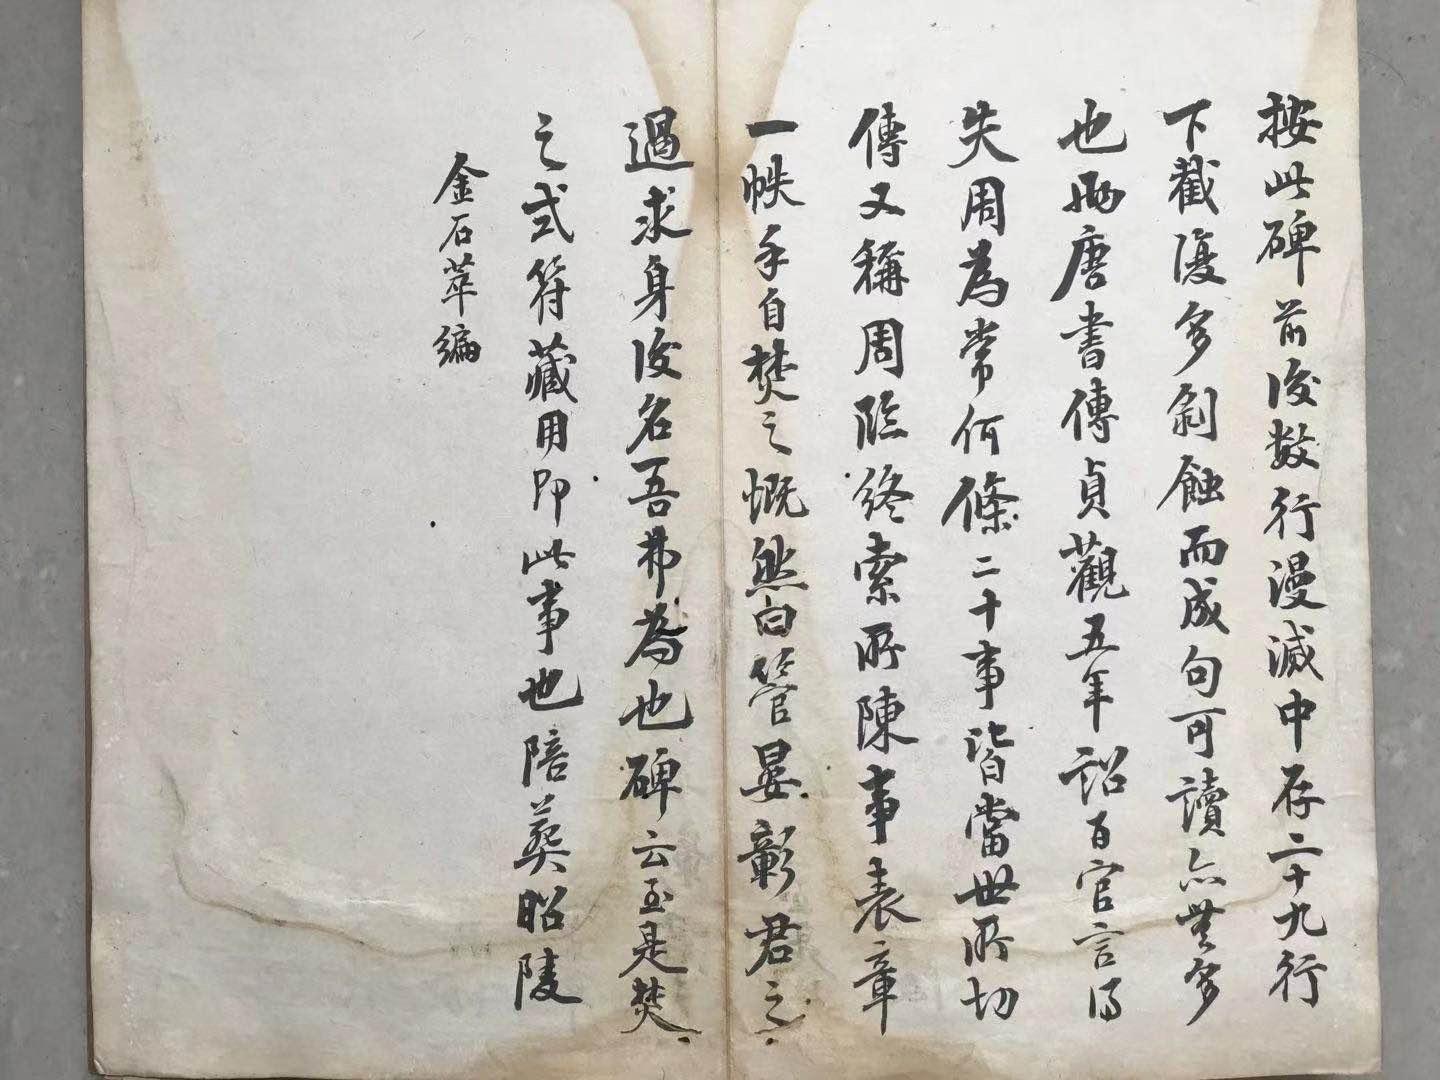 按此碑前後数行漫滅中存二十九行
下截復多剝蝕而成句可讀亦無多
也兩唐書傳貞觀五年詔百官言得
失周為常何條二十事皆當世所切
傳又稱周臨終索所陳事表章
一帙手自焚之慨然曰管晏彰君之
過求身後名吾弗為也碑云至是焚
之或符藏用即此事也陪葬昭陵
金石萃編